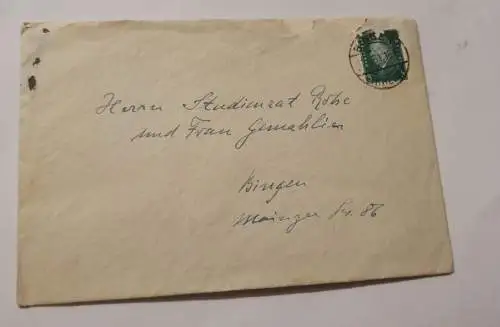 Herrn Studienrat Röhe
und Frau Gemahlin
Bingen
Mainzer Str. 86